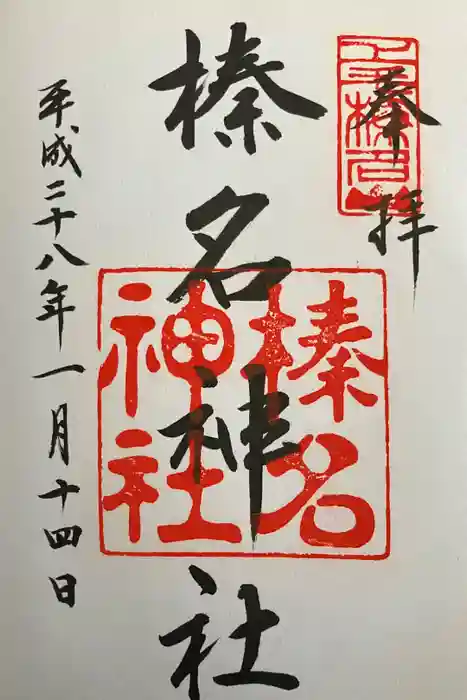 奉拝
榛名神社
榛名
神社
平成二十八年一月十四日